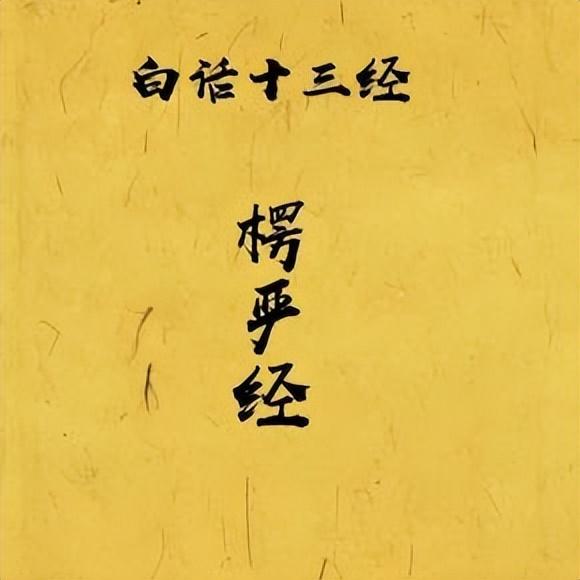 白话十三经
楞严经